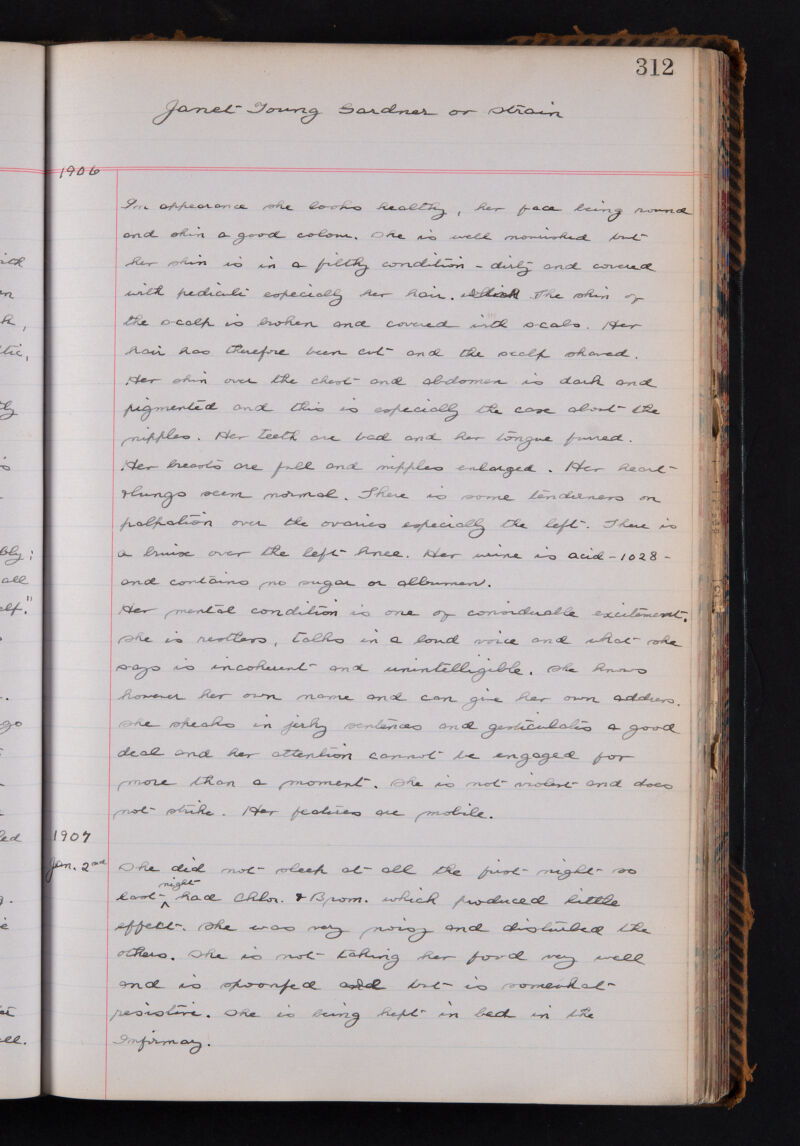 312
Janet Young Gardner or Strain
1906
In appearance she looks healthy, her face being round
and skin a good colour. She is well nourished but
her skin is in a filthy condition - dirty and covered
with pediculi especially her hair. The skin of
the scalp is broken and covered with scabs. Her
hair has therefore been cut and the scalp shaved.
Her skin over the chest and abdomen is dark and
pigmented and this is especially the case about the
nipples. Her teeth are bad and her tongue furred.
Her breasts are full and nipples enlarged. Her heart
& lungs seem normal. There is some tenderness on
palpation over the ovaries especially the left. There is
a bruise over the left knee. Her urine is acid - 1028 -
and contains no sugar or albumen.
Her mental condition is one of considerable excitement.
She is restless, talks in a loud voice and what she
says is incoherent and unintelligible. She knows
however her own name and can give her own address.
She speaks in jerky sentences and gesticulates a good
deal and her attention cannot be engaged for
more than a moment. She is not violent and does
not strike. Her features are mobile.
1907
Jan. 2nd She did not sleep at all the first night so
last night had Chlor. & Brom. which produced little
effect. She was very noisy and disturbed the
others. She is not taking her food very well
and is spoonfed and but is somewhat
resistive. She is being kept in bed in the
Infirmary.